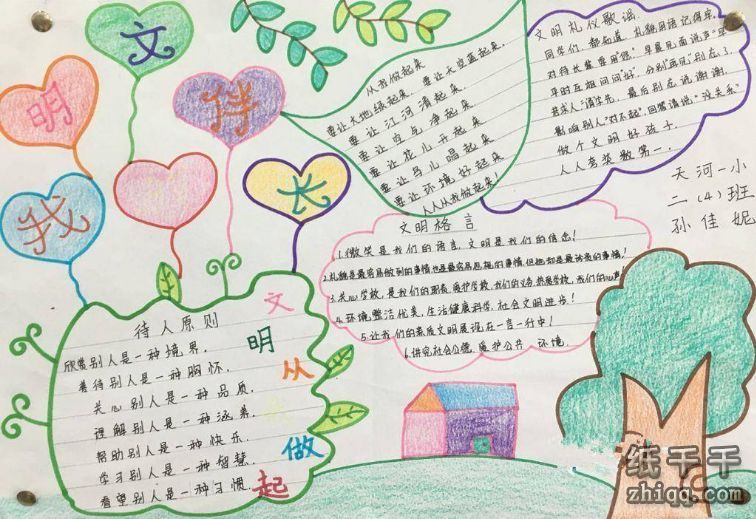 明
文
待
我
长
从我做起来
要让大地绿起来，要让天空蓝起来，
要让江河清起来
要让空气净起来
要让花儿开起来
要让鸟儿唱起来
要让环境好起来
人人从我做起来！
文明礼仪歌谣
同学们，都知道，礼貌用语记得牢，
对待长辈要用"您"，早晨见面说声"早"
平时互相问问"好"，分别"再见"别忘了，
若求人，"请"字先，最后别忘说谢谢，
影响别人"对不起"，回答请说"没关系"
做个文明好孩子，
人人夸奖数第一，
天河一小
二（4）班
孙佳妮
文明格言
1.微笑是我们的语言，文明是我们的信念！
2.礼貌是最容易做到的事情，也是最容易忽视的事情，但他却是最珍贵的事情！
3.关心学校，是我们的职责，爱护学校，我们的义务，热爱学校，我们的心声
4.环境整洁优美，生活健康科学，社会文明进步！
5.让我们的素质文明展现在一言一行中！
6.讲究社会公德，爱护公共 环境，
待人原则
欣赏别人是一种境界，
善待别人是一种胸怀，
关心别人是一种品质，
理解别人是一种涵养，
帮助别人是一种快乐，
学习别人是一种智慧，
看望别人是一种习惯，
文
明
从
做
起
纸千千
zhiqq.com